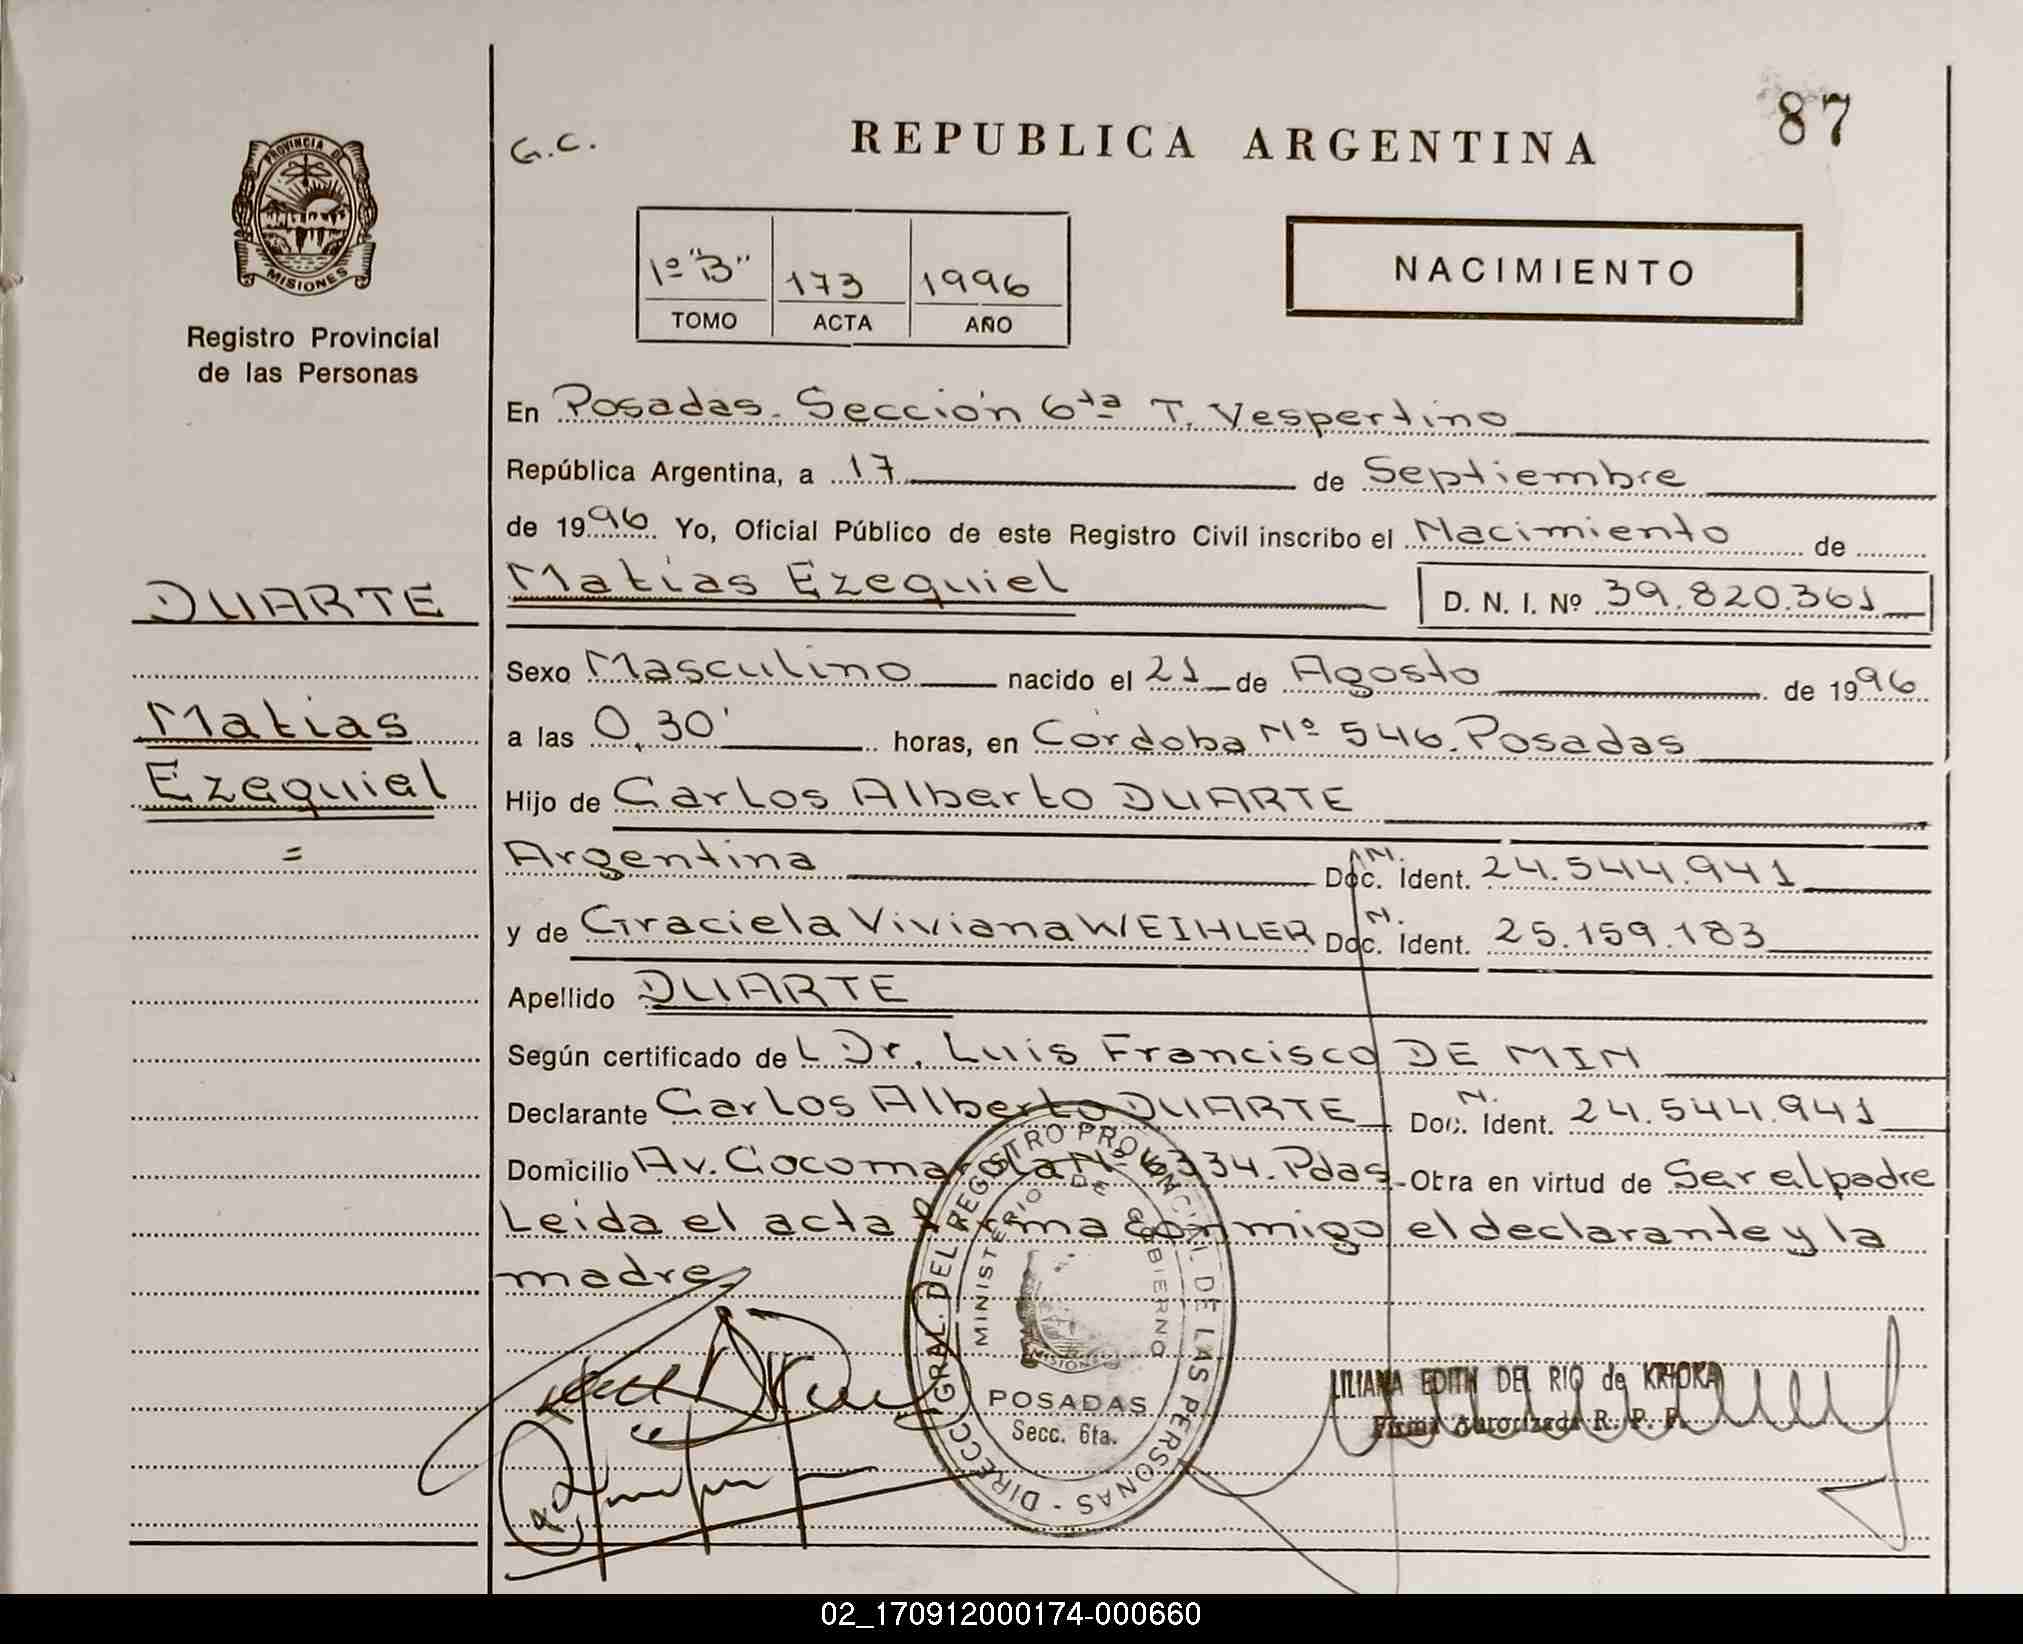 G.C.
REPUBLICA ARGENTINA
87
PROVINCIA DE
MISIONES
Registro Provincial
de las Personas
1º "B" 173 1996
TOMO ACTA AÑO
NACIMIENTO
En Posadas. Sección 6ta T. Vespertino
República Argentina, a 17 de Septiembre
de 1996 Yo, Oficial Público de este Registro Civil inscribo el Nacimiento de
Matias Ezequiel D. N. I. Nº 39.820.361
DUARTE
Matias
Ezequiel
=
Sexo Masculino nacido el 21 de Agosto de 1996
a las 0,30' horas, en Córdoba Nº 546. Posadas
Hijo de Carlos Alberto DUARTE
Argentina Doc. N. Ident. 24.544.941
y de Graciela Viviana WEIHLER Doc. N. Ident. 25.159.183
Apellido DUARTE
Según certificado de L Dr. Luis Francisco DE MIN
Declarante Carlos Alberto DUARTE Doc. N. Ident. 24.544.941
Domicilio Av. Cocomarola Nº 6334. Pdas. Otra en virtud de Ser el padre
Leida el acta firma conmigo el declarante y la
madre
DIRECC. GRAL. DEL REGISTRO PROVINCIAL DE LAS PERSONAS
MINISTERIO DE GOBIERNO
MISIONES
POSADAS
Secc. 6ta.
LILIANA EDITH DEL RIO de
Firma Autorizada R. P. P.
02_170912000174-000660